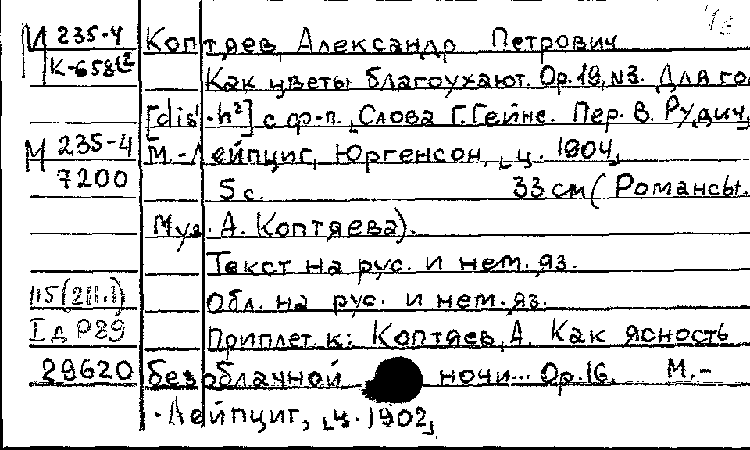 И 235-4 Коптяев, Александр Петрович
К-658
Как цветы благоухают. Op.18, N3. Для го
[dis¹-h²] с ф-п. Слова Г. Гейне. Пер. В. Рудич,
М 235-4 М.-Лейпциг, Юргенсон, ц. 1904,
7200 5 с. 33 см (Романсы.
Муз. А. Коптяева).
Текст на рус. и нем. яз.
115(211.1) Обл. на рус. и нем. яз.
I д Р89 Приплет. к: Коптяев, А. Как ясность
29620 безоблачной ночи... Op.16. М.-
-Лейпциг, ц. 1902,